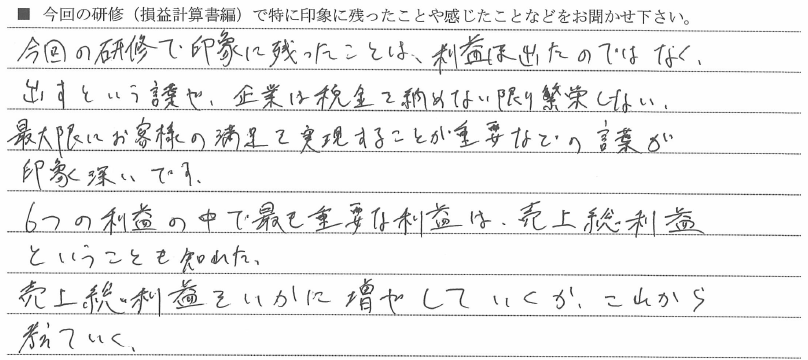 ■ 今回の研修（損益計算書編）で特に印象に残ったことや感じたことなどをお聞かせ下さい。
今回の研修で印象に残ったことは、利益は出たのではなく、
出すという話や、企業は税金を納めない限り繁栄しない、
最大限にお客様の満足を実現することが重要などの言葉が
印象深いです。
6つの利益の中で最も重要な利益は、売上総利益
ということも知れた。
売上総利益をいかに増やしていくか、これから
考えていく。